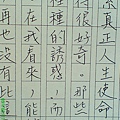 真正人生使命
得很好奇。那些
種的誘惑，而
在我看來，能
再也沒有比